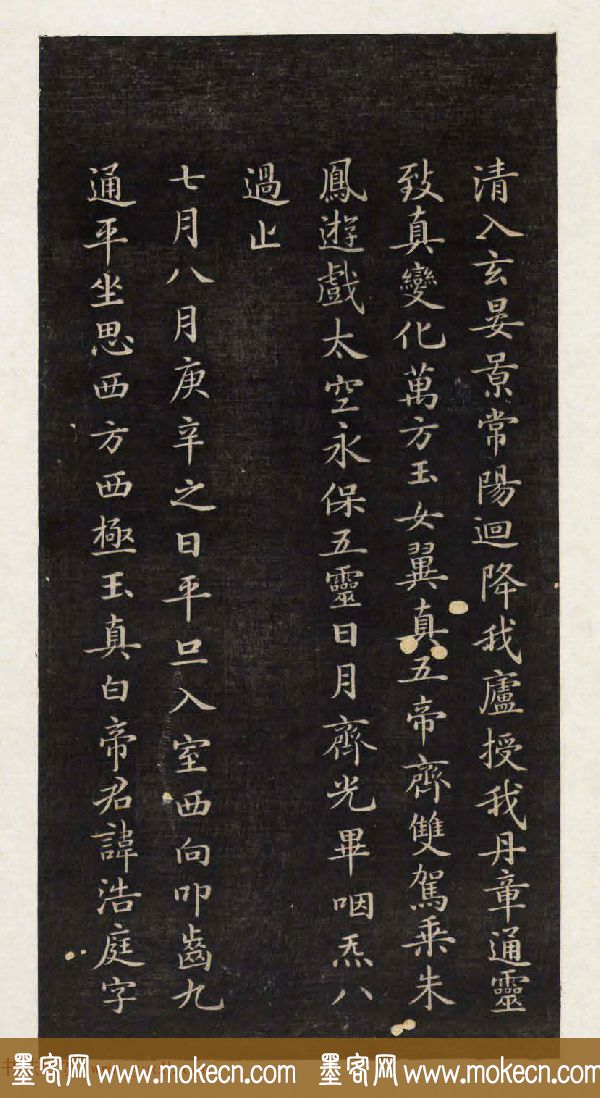 清入玄晏景常陽迴降我廬授我丹章通靈
致真變化萬方玉女翼真五帝齊雙駕乗朱
鳳遊戲太空永保五靈日月齊光畢咽炁八
過止
七月八月庚辛之日平旦入室西向叩齒九
通平坐思西方西極玉真白帝君諱浩庭字
墨客网 www.mokecn.com 墨客网 www.mokecn.com